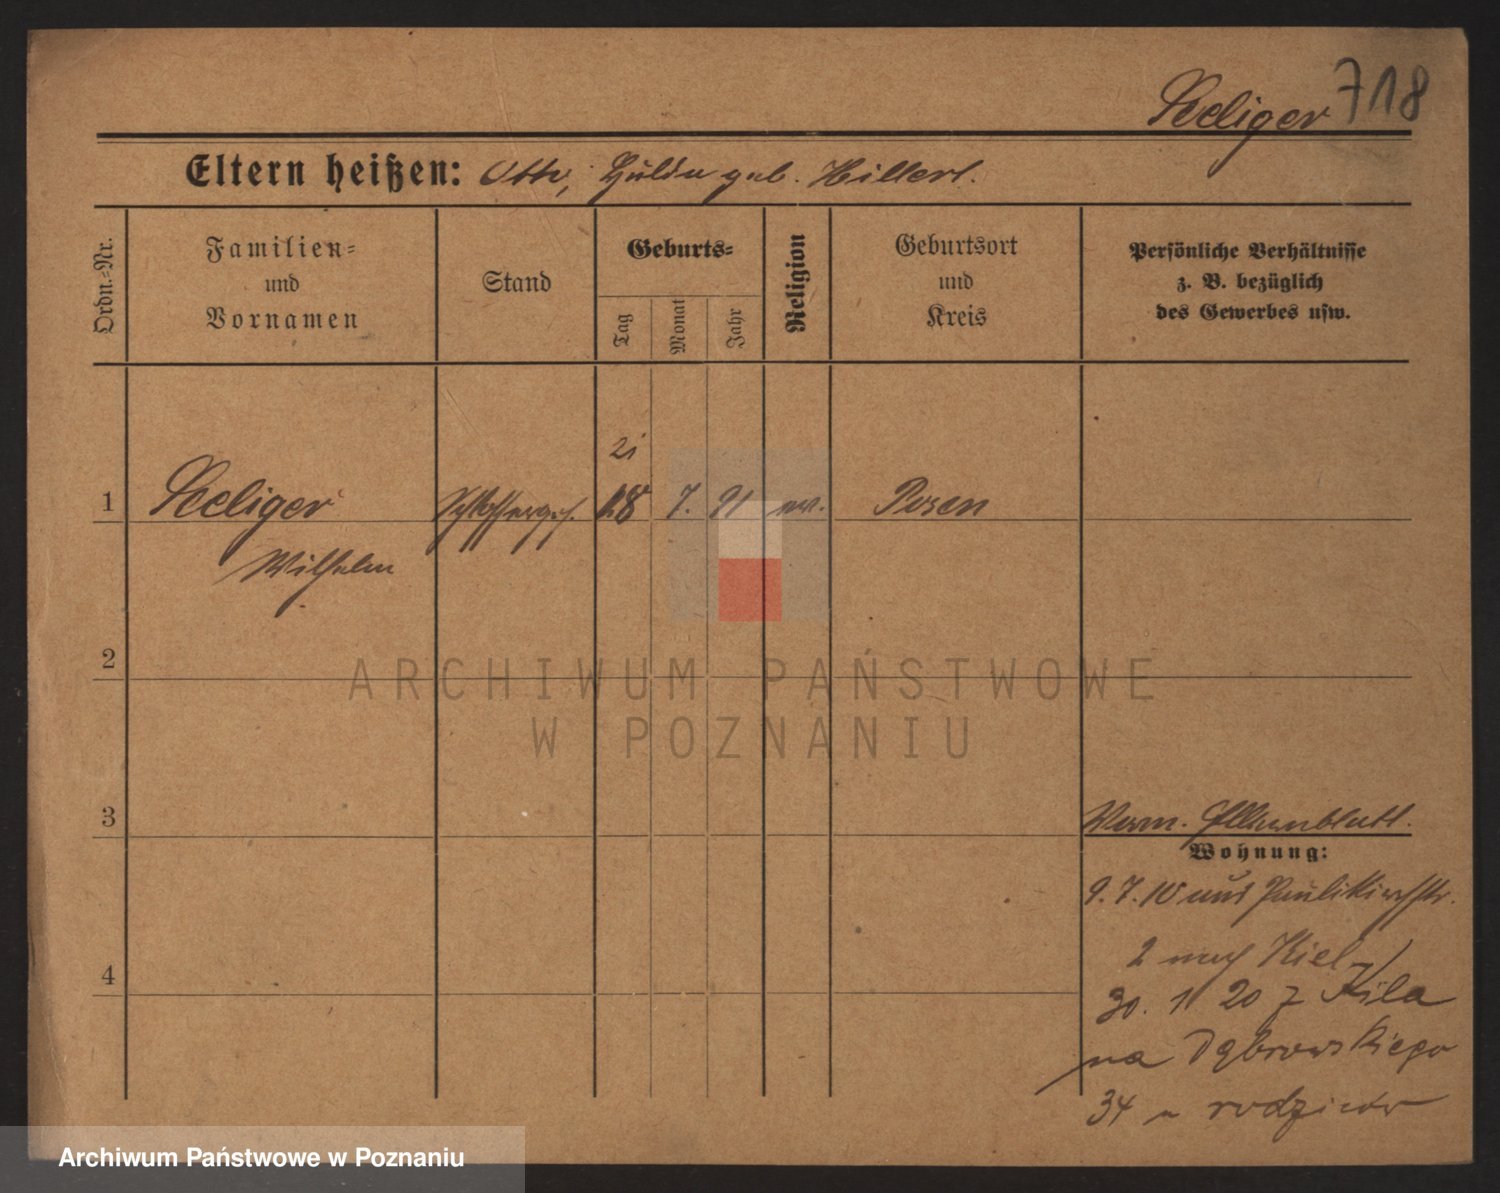 718
Seeliger
Eltern heißen: Otto, Hulda geb. Hillert.
Ordn.-Nr.
Familien-
und
Vornamen
Stand
Geburts-
Tag
Monat
Jahr
Religion
Geburtsort
und
Kreis
Persönliche Verhältnisse
z. B. bezüglich
des Gewerbes usw.
21
1 Seeliger Schlosserges. 18 7. 91 ev. Posen
Wilhelm
2
ARCHIWUM PAŃSTWOWE
W POZNANIU
3
Verm. Elternblatt.
Wohnung:
9.7.10 aus Paulikirchstr.
2 nach Kiel
4
30. 1. 20 z Kila
na Dąbrowskiego
34 u rodziców
Archiwum Państwowe w Poznaniu